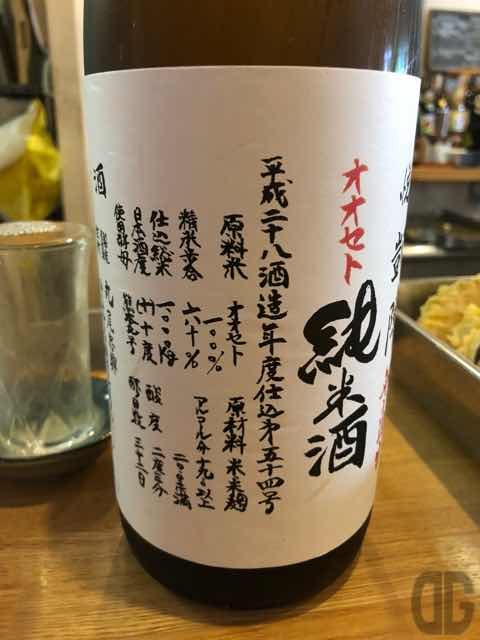 悦凱陣
オオセト
純米酒
平成二十八酒造年度仕込第五十四号
原料米 オオセト 一〇〇%
原材料 米 米麹
精米歩合 六十%
アルコール分 十九度以上 二〇度未満
仕込総米 一〇〇〇kg
酸度 二度三分
日本酒度 (+)十度
使用酵母 熊本九号
醪日数 三十二日
酒
DG